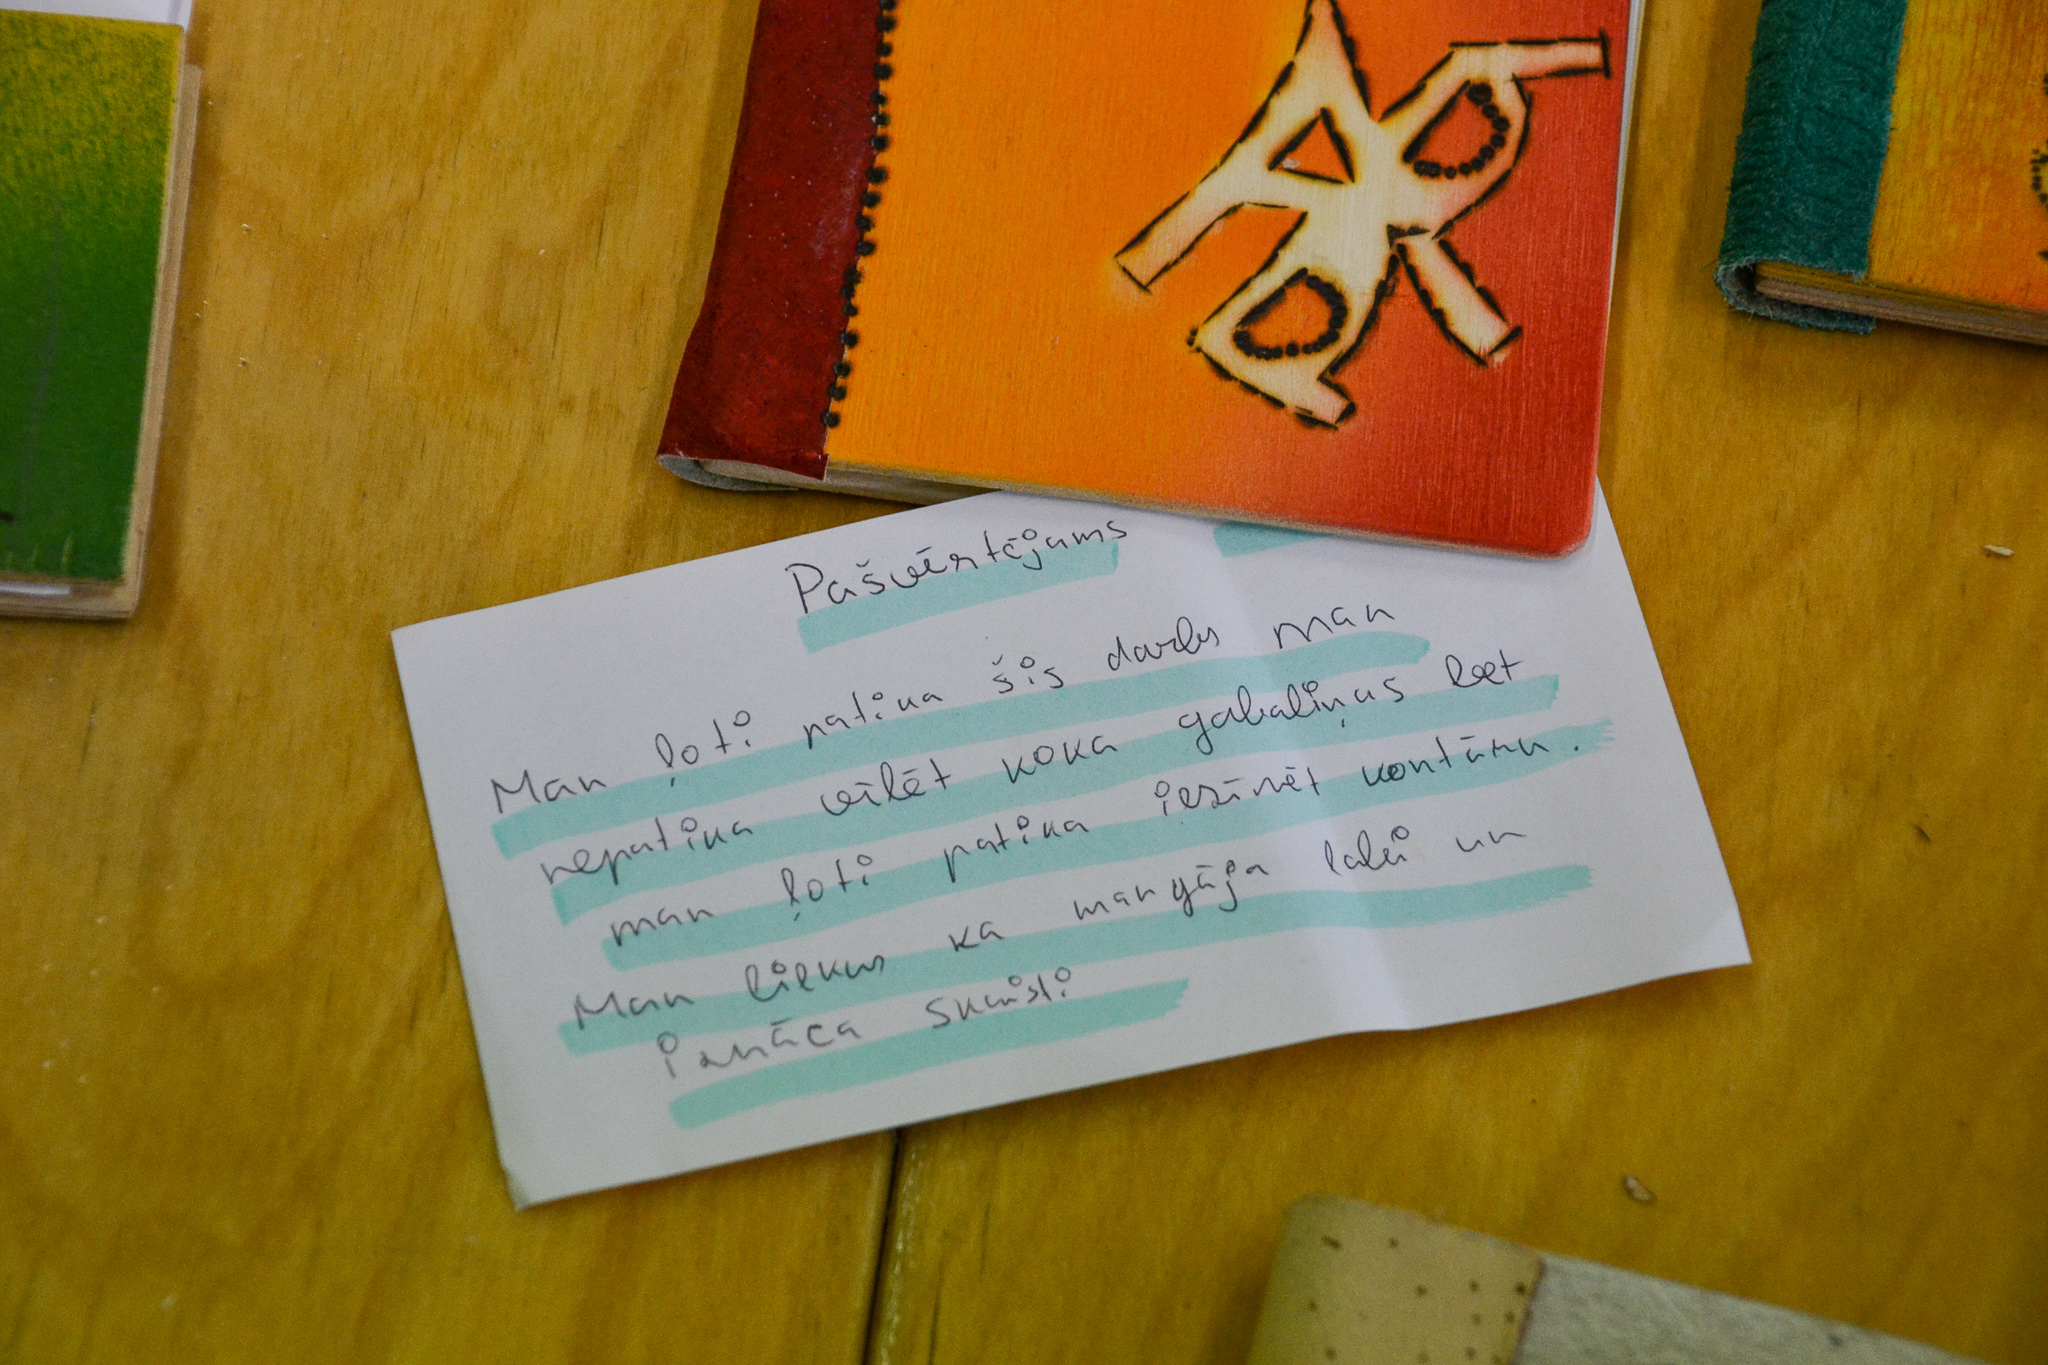 Pašvērtējams
Man ļoti patika šis darbs man
nepatika vīlēt koka gabaliņus bet
man ļoti patika iezīmēt kontūru.
Man liekas ka man gāja labi un
iznāca skaisti